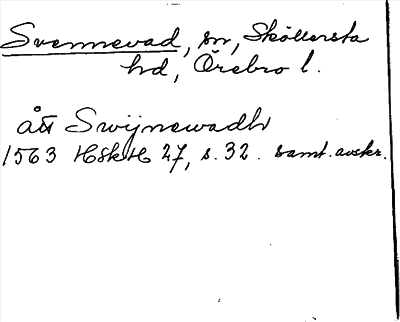 Svennevad, sn, Sköllersta
hd, Örebro l.
att Swijnewadh
1563 HSkH 27, s. 32. samt. avskr.